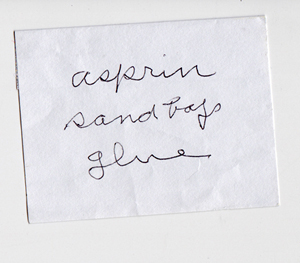 asprin
sand bags
glue